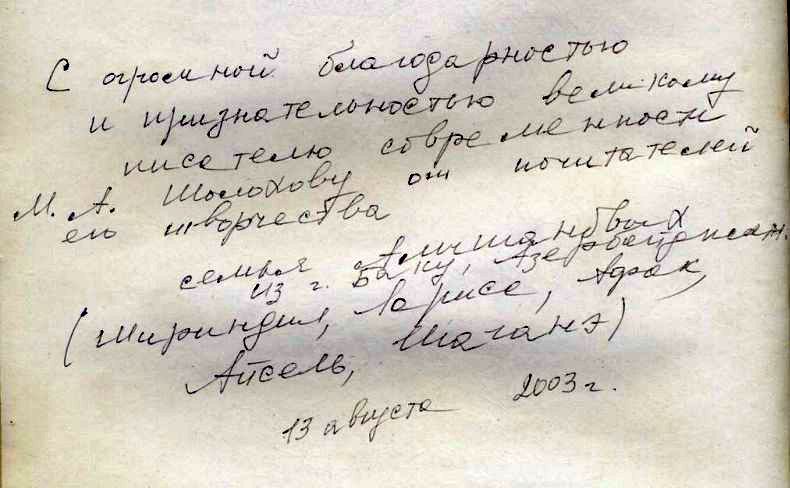 С огромной благодарностью
и признательностью великому
писателю современности
М. А. Шолохову от почитателей
его творчества
семья Алишановых
из г. Баку, Азербайджан.
(Ширинди, Лариса, Афак,
Айсель, Шагане)
13 августа 2003 г.